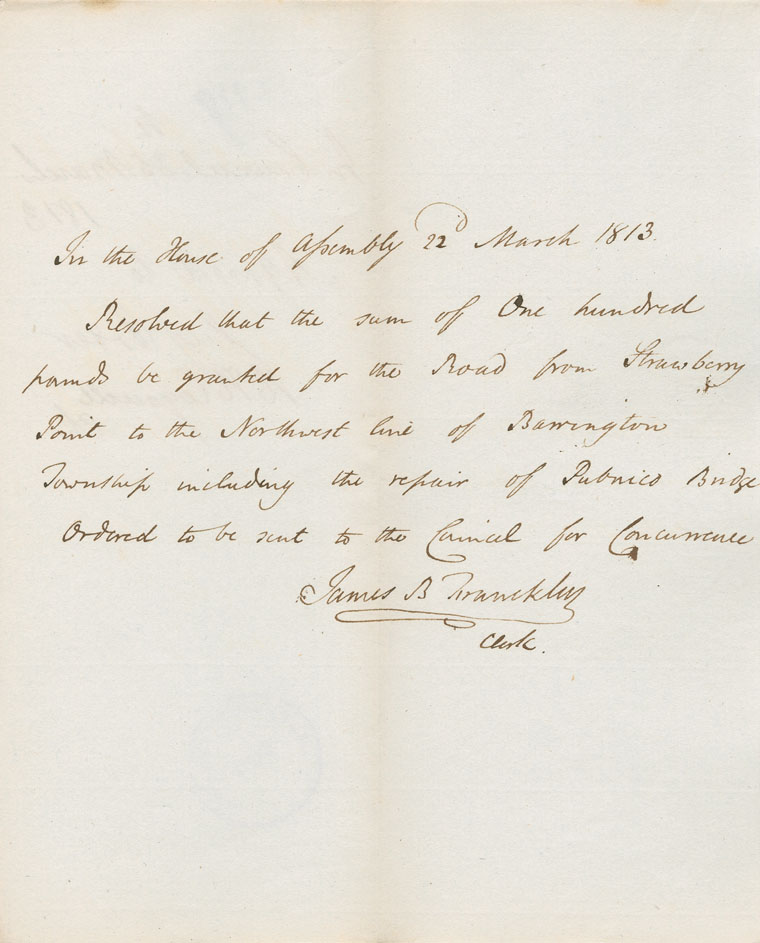 In the House of Assembly 22d March 1813.
Resolved that the sum of One hundred
pounds be granted for the Road from Strawberry
Point to the Northwest line of Barrington
Township including the repair of Pubnico Bridge
Ordered to be sent to the Council for Concurrence
James B Franckley
Clerk.
1813